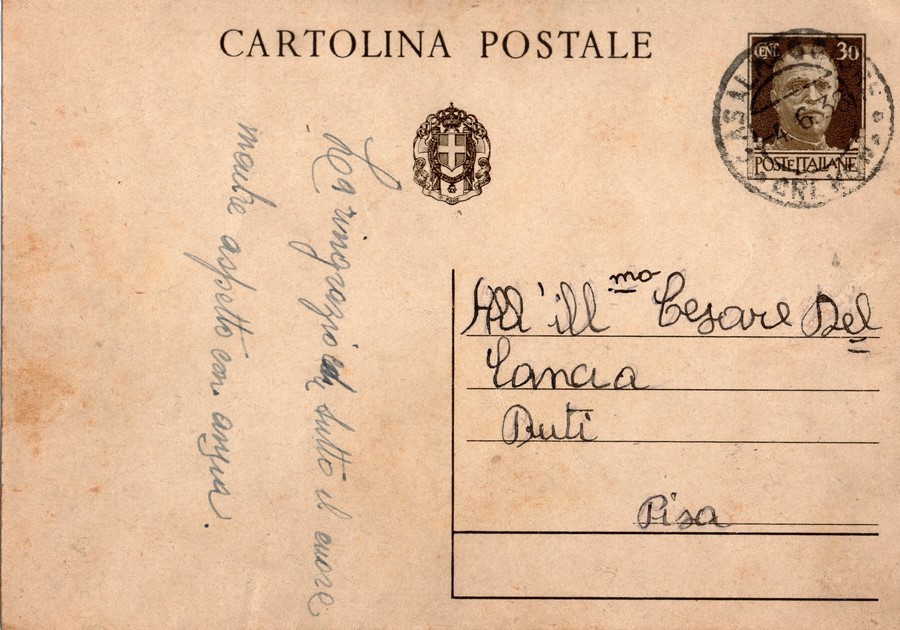 CARTOLINA POSTALE
CENT. 30
POSTE ITALIANE
La ringrazio di tutto il cuore
mentre aspetto con ansia.
All'ill mo Cesare Del
Lancia
Buti
Pisa